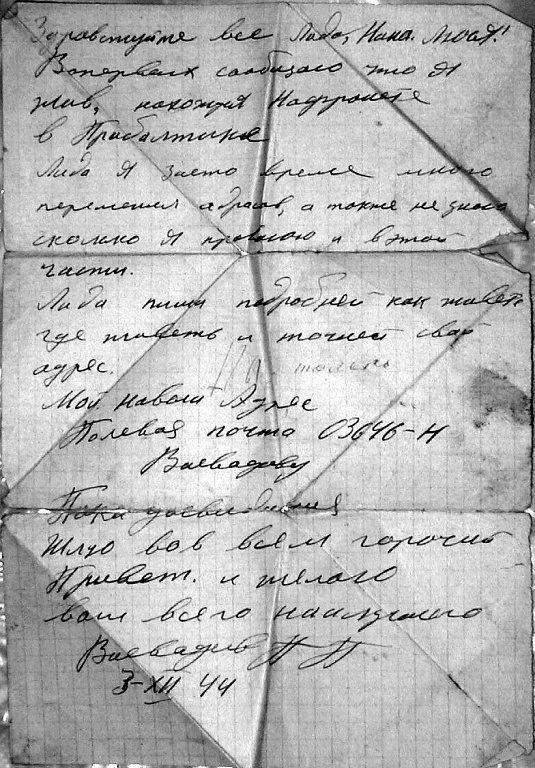 Здравствуйте все Лида, Нина. Люся!
Вопервых сообщаю что я
жив, нахожуся Надфронете
в Прибалтике
Лида я заето време много
переменил адрасов, а также не знаю
сколько я пробюю и вэтой
части.
Лида пиши подробней как живете
где живеть и точней свой
адрес.
Мой новый Адрес
Полевая почта 03646-Н
Воеводову
Пока досвидания
Шлю вов всем горочий
Привет. и желаю
вам всего наилучшего
Воеводов П П
3-XII 44